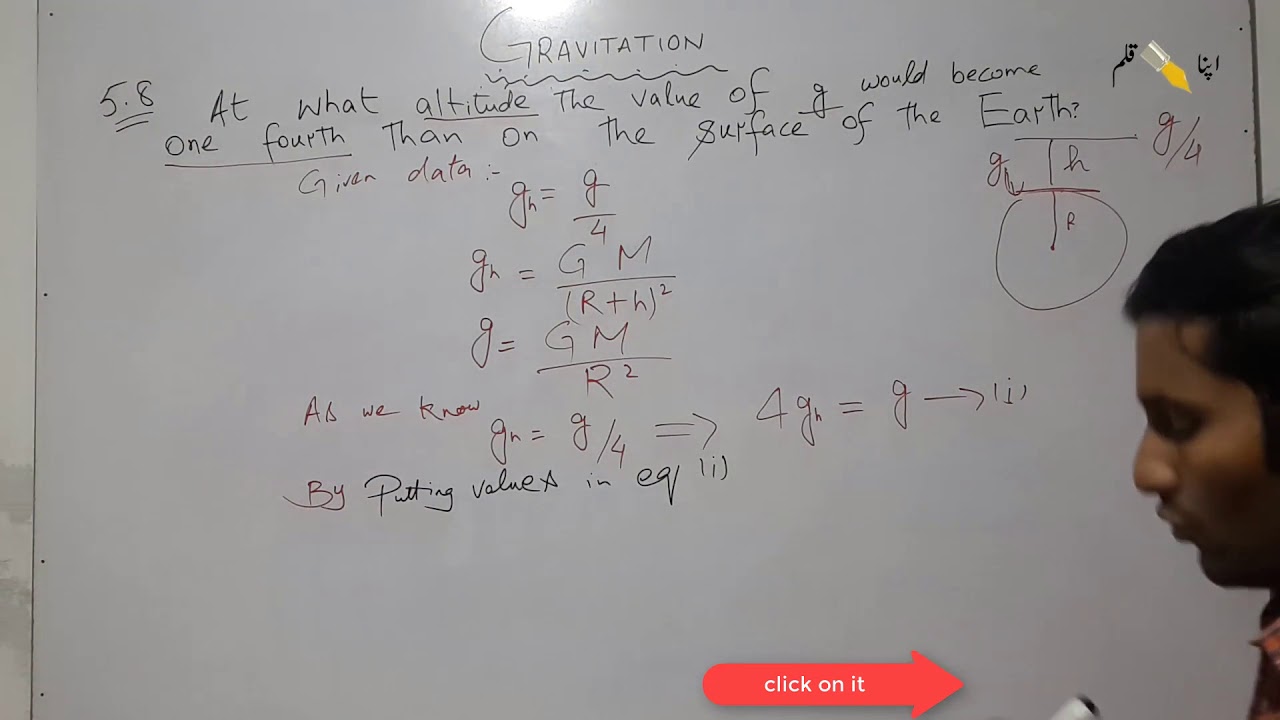 GRAVITATION
اپنا قلم
5.8 At what altitude the value of g would become
one fourth than on the surface of the Earth?
Given data :-
gh = g/4
gh = G M/(R+h)²
g = G M/R²
As we know
gh = g/4 ⇒ 4gh = g → (i)
By Putting values in eq (i)
g/4
h
gh
R
click on it